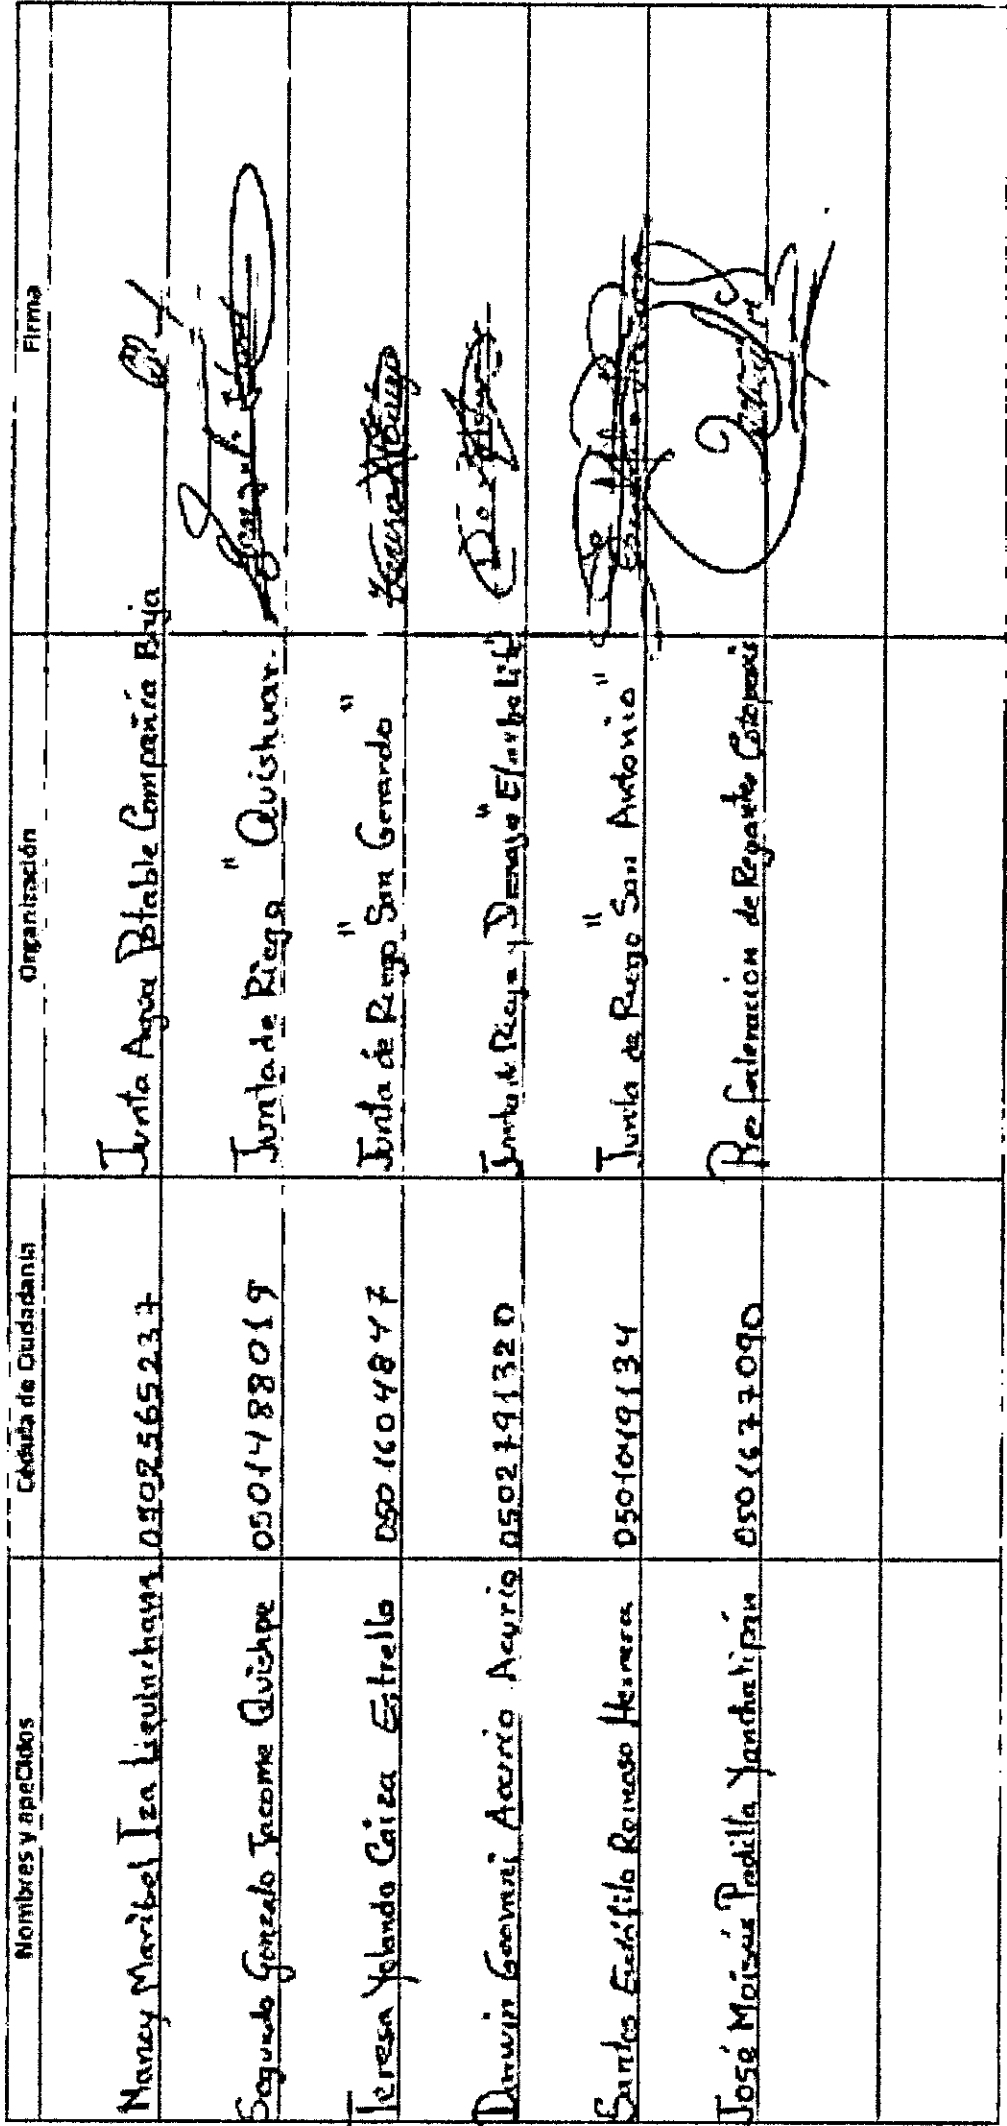 Nombres y apellidos Cédula de Ciudadanía Organización Firma
Nancy Maribel Iza 0902565237 Junta Agua Potable Compañía Baja
Segundo Gonzalo Jacome Quishpe 0501488019 Junta de Riego "Quishuar"
Teresa Yolanda Caiza Estrello 0501604847 Junta de Riego "San Gerardo"
Darwin Geovani Acurio Acurio 0502791320 Junta de Riego y Drenaje
Santos Eudófilo Reinoso Herrera 0501049134 Junta de Riego "San Antonio"
José Moisés Padilla Yanchatipán 0501677090 Pre federación de Regantes Cotopaxi